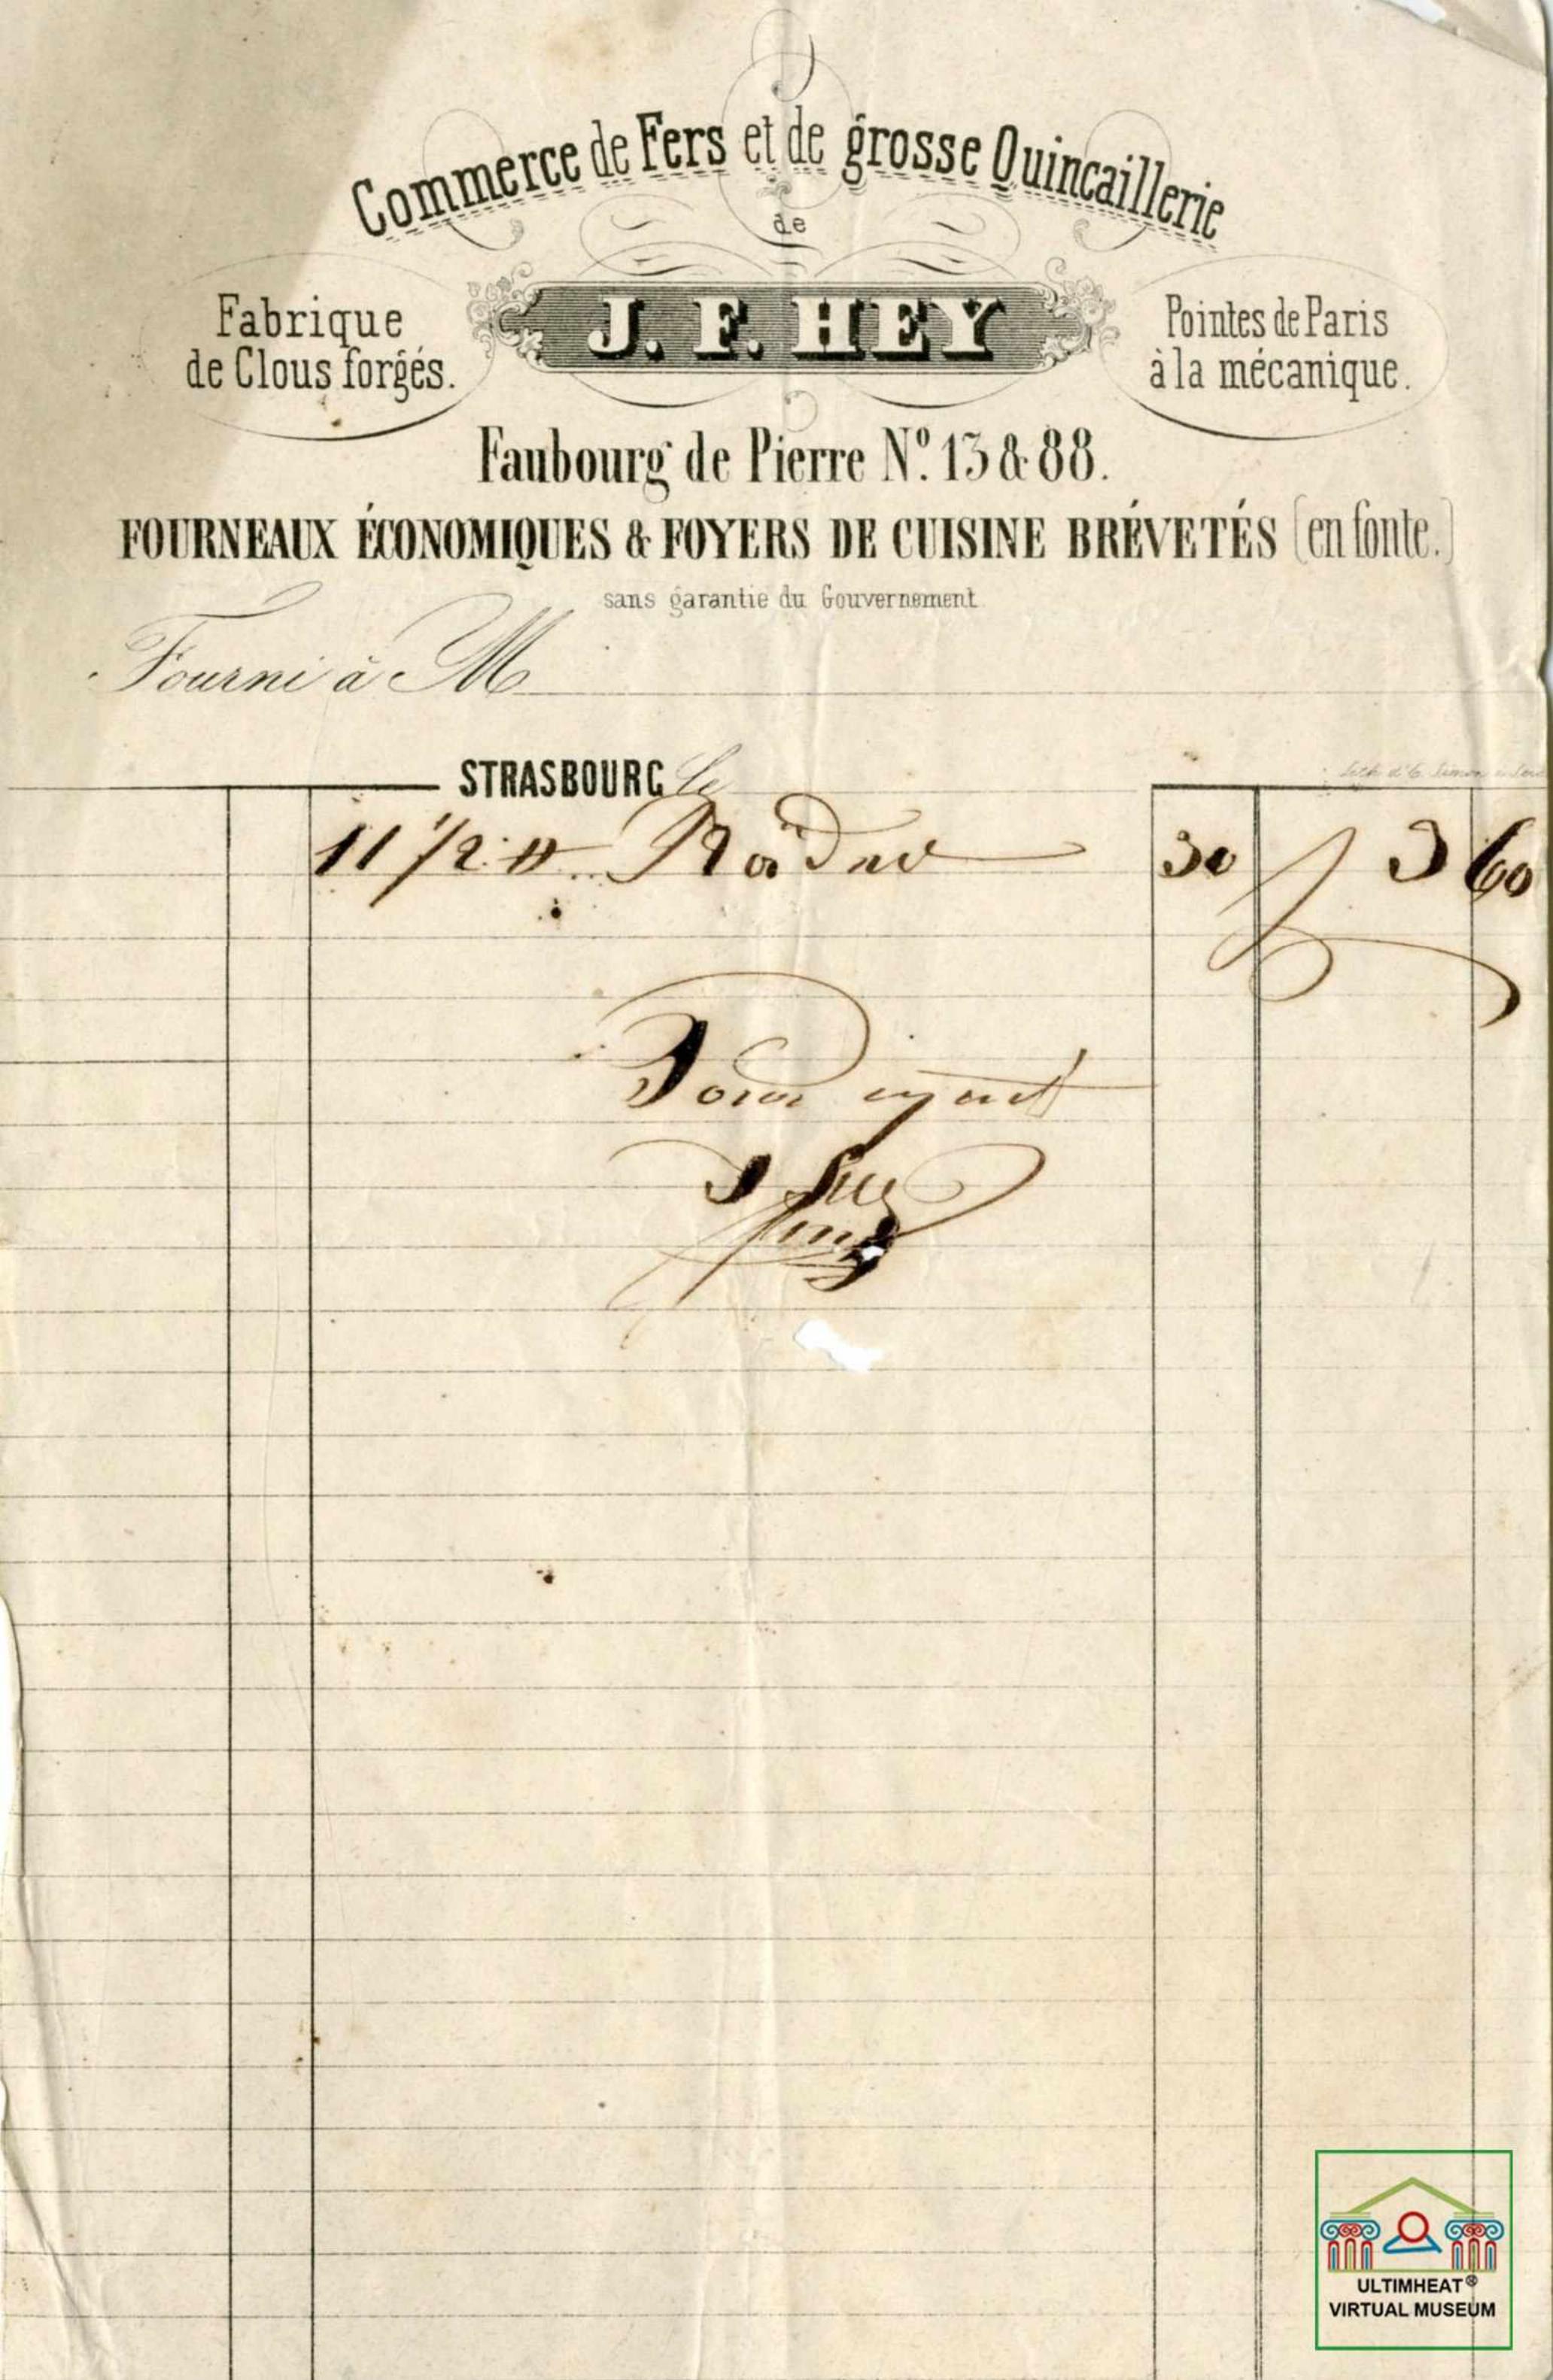 Commerce de Fers et de grosse Quincaillerie
de
J. F. HEY
Fabrique
de Clous forgés.
Pointes de Paris
à la mécanique.
Faubourg de Pierre Nº. 13 & 88.
FOURNEAUX ÉCONOMIQUES & FOYERS DE CUISINE BRÉVETÉS (en fonte.)
sans garantie du Gouvernement
Fourni à M
STRASBOURG le
11 1/2 30 3 60
Pour
ULTIMHEAT®
VIRTUAL MUSEUM